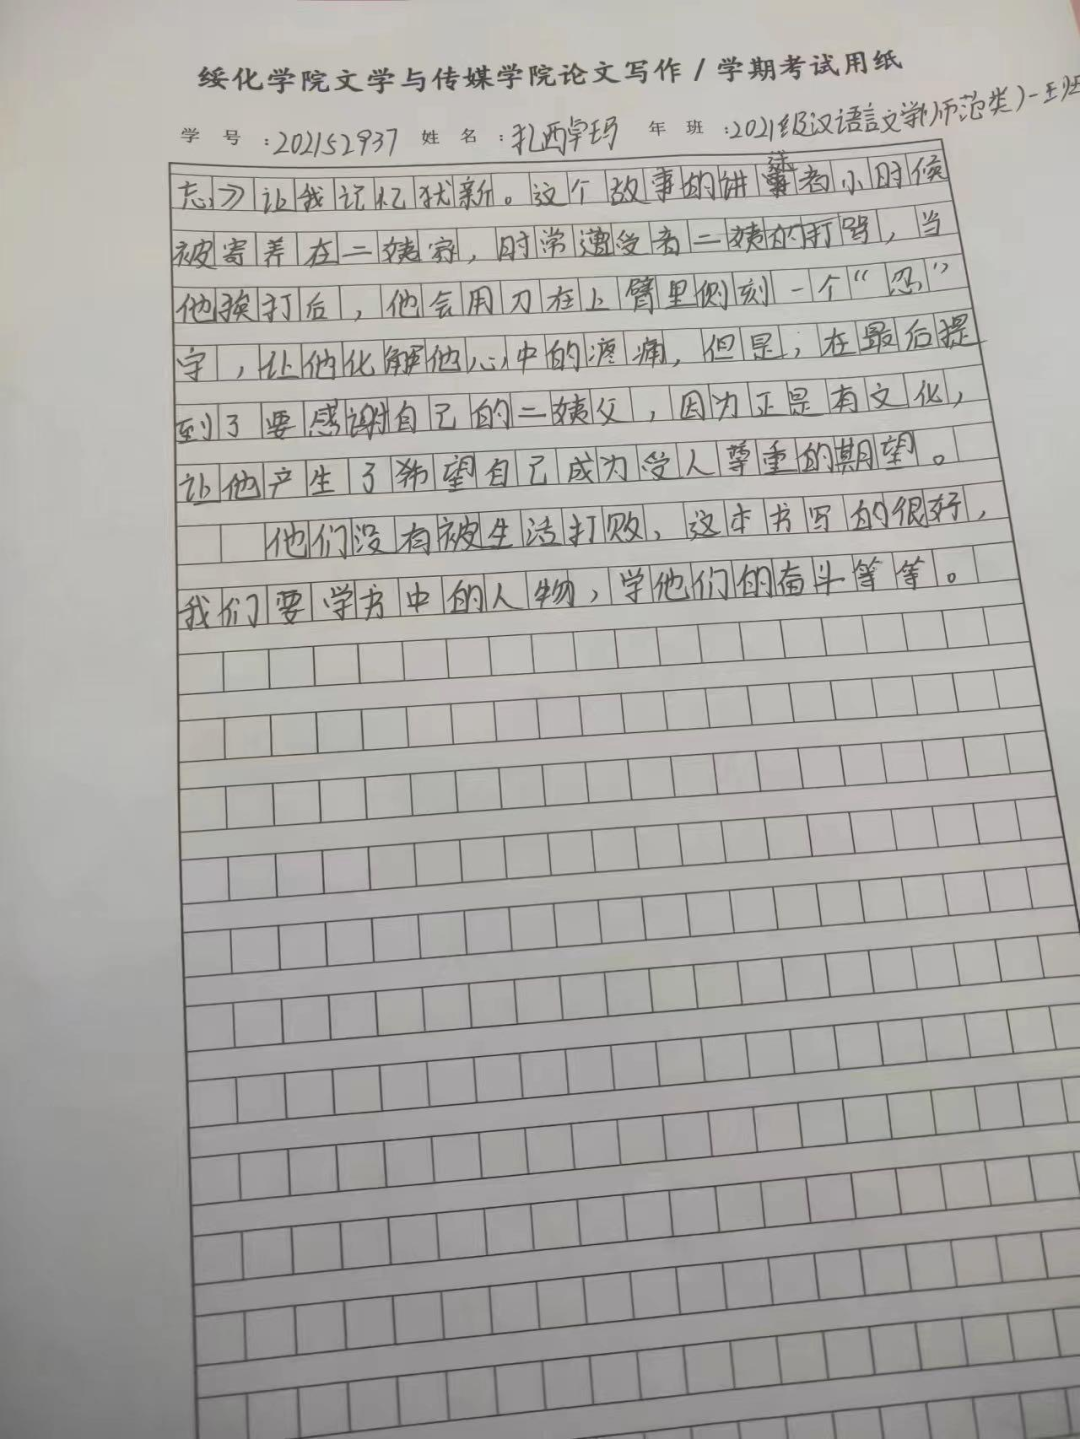 绥化学院文学与传媒学院论文写作/学期考试用纸
学 号 :202152937 姓 名 :扎西卓玛 年 班 :2021级汉语言文学(师范类)一班
忘》让我记忆犹新。这个故事的讲述者小时候
被寄养在二姨家，时常遭受着二姨的打骂，当
他挨打后，他会用刀在上臂里侧刻一个“忍”
字，让他化解他心中的疼痛，但是，在最后提
到了要感谢自己的二姨父，因为正是有文化，
让他产生了希望自己成为受人尊重的期望。
他们没有被生活打败、这本书写的很好，
我们要学书中的人物，学他们的奋斗等等。